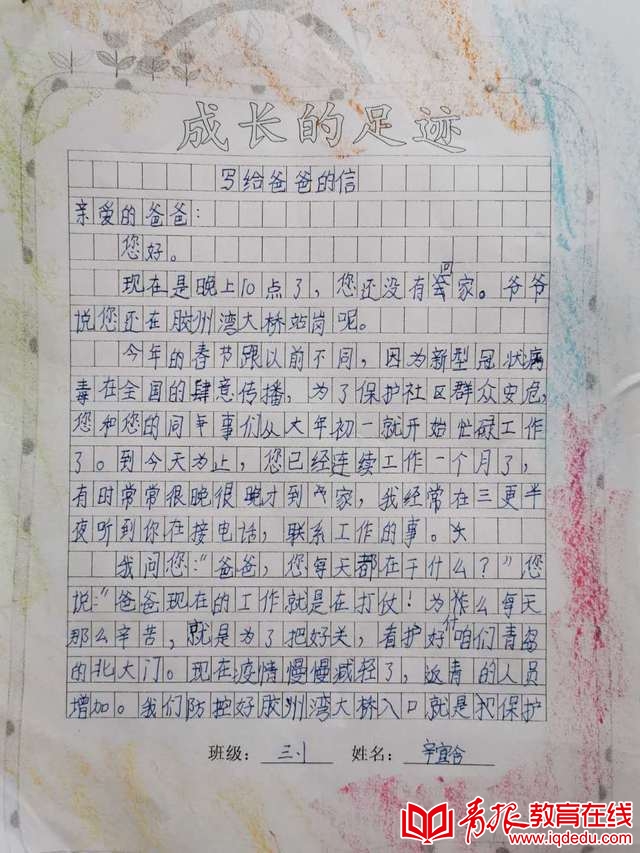 成长的足迹
写给爸爸的信
亲爱的爸爸：
您好。
现在是晚上10点了，您还没有回家。爷爷
说您还在胶州湾大桥站岗呢。
今年的春节跟以前不同，因为新型冠状病
毒在全国的肆意传播，为了保护社区群众安危，
您和您的同事们从大年初一就开始忙碌工作
了。到今天为止，您已经连续工作一个月了，
有时常常很晚很晚才到家，我经常在三更半
夜听到你在接电话，联系工作的事。
我问您：“爸爸，您每天都在干什么？”您
说：“爸爸现在的工作就是在打仗！为什么每天
那么辛苦，就是为了把好关，看护好咱们青岛
的北大门。现在疫情慢慢减轻了，返青的人员
增加。我们防控好胶州湾大桥入口就是保护
班级：三.1 姓名：宜含
青报教育在线
www.iqdedu.com